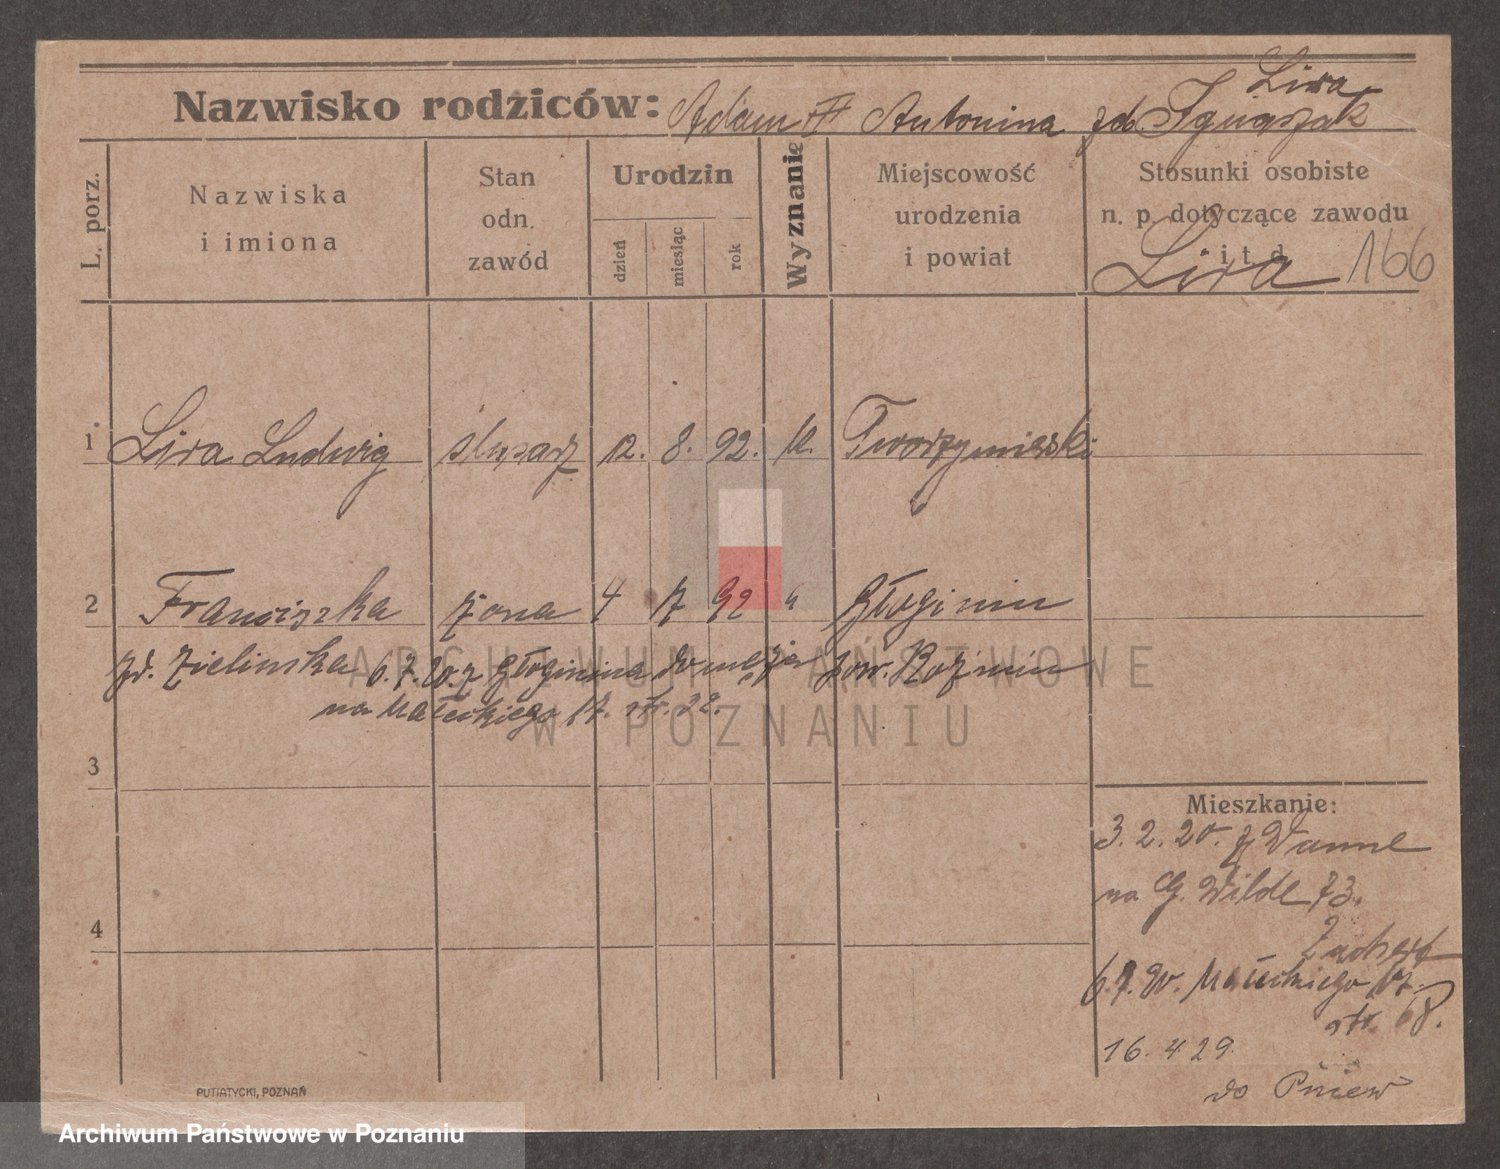 Lira
Nazwisko rodziców: Adam II Antonina zd. Ignaszak
L. porz.
Nazwiska
i imiona
Stan
odn.
zawód
Urodzin
dzień
miesiąc
rok
Wyznanie
Miejscowość
urodzenia
i powiat
Stosunki osobiste
n. p. dotyczące zawodu
i t. d.
Lira 166
1 Lira Ludwig ślusarz 12. 8. 92. kl.
2 Franciszka żona 4 7 92 " Głoginin
zd. Zielinska 6.7.20. z Głoginina do męża pow. Kozmin
na Małeckiego 17. str. 22.
3
Mieszkanie:
3. 2. 20. z Wanne
na G. Wilde 73.
4
6.7.20. Małeckiego 17.
str. 68.
16. 4 29.
do Pniew
PUTIATYCKI, POZNAŃ
ARCHIWUM PAŃSTWOWE
W POZNANIU
Archiwum Państwowe w Poznaniu